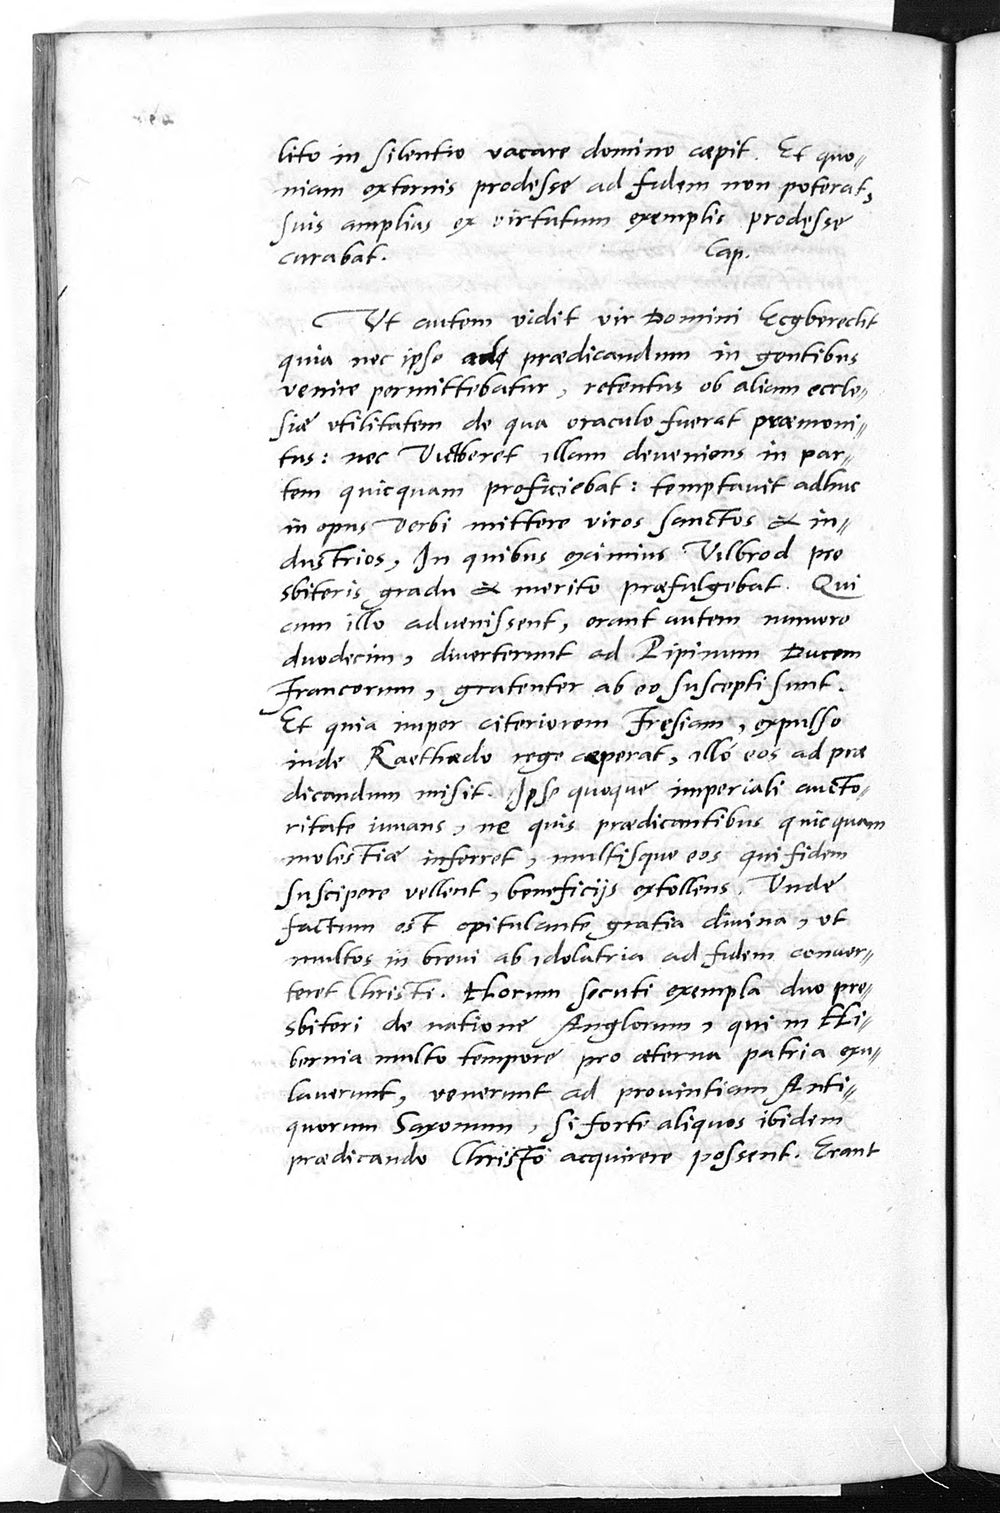 lito in silentio vacare domino cæpit. Et quo⸗
niam externis prodesse ad fidem non poterat,
suis amplius ex virtutum exemplis prodesse
curabat. Cap.
Ut autem vidit vir Domini Ecgberecht
quia nec ipse ad prædicandum in gentibus
venire permittebatur, retentus ob aliam eccle⸗
siæ vtilitatem de qua oraculo fuerat præmoni⸗
tus: nec Victberet illam deveniens in par⸗
tem quicquam proficiebat: temptavit adhuc
in opus Verbi mittere viros sanctos & in⸗
dustrios, In quibus eximius Vilbrod pre
sbiteris gradu & merito præfulgebat. Qui
cum illo advenissent, erant autem numero
duodecim, diverterunt ad Pipinum Ducem
Francorum, gratenter ab eo suscepti sunt.
Et quia nuper citeriorem Fresiam, expulso
inde Raethædo rege cæperat, illó eos ad præ
dicandum misit. Ipse quoque imperiali aucto⸗
ritate iuvans, ne quis prædicantibus quicquam
molestiæ inferret, multisque eos qui fidem
suscipere vellent, beneficijs extollens. Unde
factum est opitulante gratia divina, ut
multos in brevi ab idolatria ad fidem conver⸗
teret Christi. Horum secuti exempla duo pre⸗
sbiteri de natione Anglorum, qui in Hi⸗
bernia multo tempore pro æterna patria exu⸗
laverunt, venerunt ad provintiam Anti⸗
quorum Saxonum, si forte aliquos ibidem
prædicando Christo acquirere possent. Erant